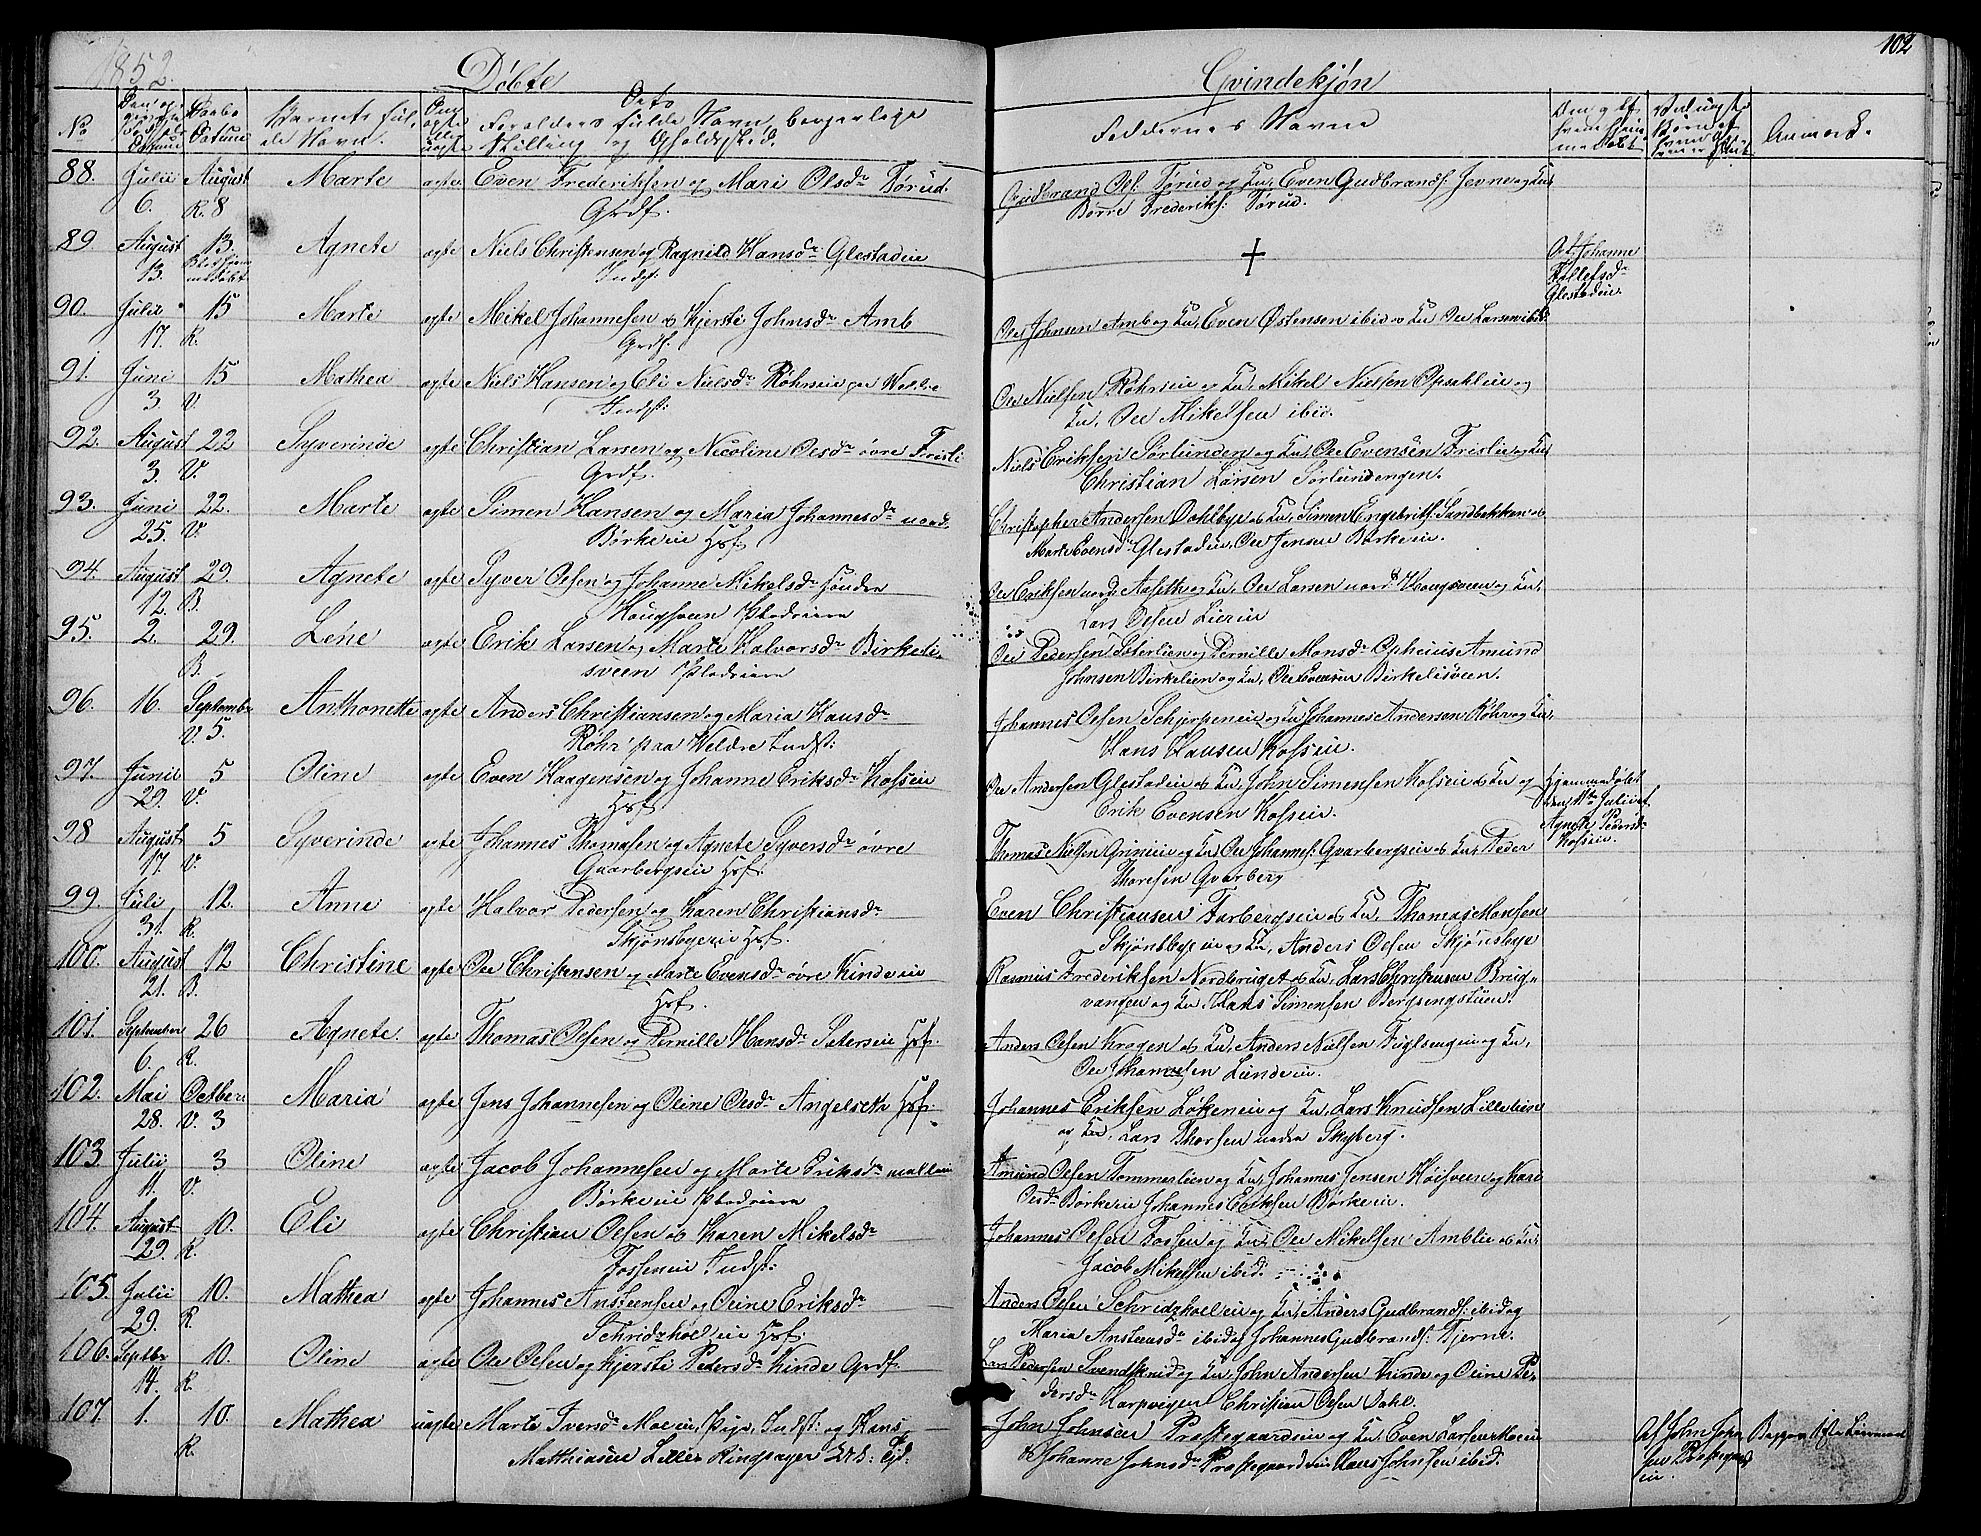 1852.
Döbte
Qvindekjön
102
No
Daabs Datum
Barnets fulde Navn.
Forældres fulde Navn, borgerlige
Stilling og Opholdssted.
Faddernes Navne
Anmærk.
88. Julii August Marte ægte Even Frederiksen og Mari Olsdr Törud.
6. R. 8 Grdf.
Gudbrand Ols. Törud og Ku, Even Gudbrands. Jevne og Ku
Börre Frederiks. Törud.
89. August 13. Agnete ægte Niels Christensen og Ragnild Hansdr Glestadeie
13. Indst.
+
Af Johanne
Glestadeie.
90. Julii 15 Marte ægte Mikel Johannesen og Kjersti Johnsdr Amb
17. R. Grdf.
Ole Johnsen Amb og Ku, Even Östensen ibid og Ku Ole Larsen ibid.
91. Juni 15 Mathea ægte Niels Hansen og Eli Nielsdr Röhreie
3. V. Indst:
Ole Nielsen Röhreie og Ku, Mikel Nielsen Opsahleie og
Ku, Ole Mikelsen ibid.
92. August 22 Syverinde ægte Christian Larsen og Nicoline Olsdr övre Frisli
3. V. Grdf.
Niels Eriksen Sörlunden og Ku, Ole Evensen Frislie og Ku
Christian Larsen Sörlundengen.
93. Juni 22. Marte ægte Simen Hansen og Maria Johannesdr nord
25. V. Börkeeie Hsf
Christopher Andersen Dahlbye og Ku, Simen Engebrits. Sandbakken og
Marte Evensdr Glestadeie, Ole Jensen Börkeeie.
94. August 29. Agnete ægte Syver Olsen og Johanne Mikelsdr söndre
12. B. Haugsveen Pladseiere
Ole Eriksen nord Aaseth og Ku, Ole Larsen nord Haugsveen og Ku,
Lars Olsen Lierie
95. 2. 29. Lene ægte Erik Larsen og Marte Halvorsdr Birkeli
B. sveen Pladseiere
Ole Pedersen Sæterlien og Pernille Monsdr Opheim Amund
Johnsen Birkelien og Ku, Ole Evensen Birkelisveen.
96. 16. Septembr Anthonette ægte Anders Christiansen og Maria Hansdr
V. 5. Röhr paa Weldre Indst:
Johannes Olsen Schjerpeneie og Ku, Johannes Andersen Röhr og Ku,
Hans Hansen Kosseie.
97. Junii 5 Oline ægte Even Haagensen og Johanne Eriksdr Kosseie
29. V. Hsf
Ole Andersen Glestadeie og Ku, John Simensen Kosseie og Ku og
Erik Evensen Kosseie.
Hjemmedöbt
den 11te Julii af
Agnete Pedersdr
Kosseie.
98 August 5 Syverinde ægte Johannes Thomasen og Agnete Syversdr övre
17. V. Qvarbergseie Hsf.
Thomas Nielsen Grineie og Ku, Ole Johannes. Qvarbergseie og Ku, Peder
Thoresen Qvarberg
99. Juli 12. Anne ægte Halvor Pedersen og Karen Christiansdr
31. R. Skjönsbyeeie Hsf.
Even Christiansen Farbergseie og Ku, Thomas Hansen
Skjönsbyeeie og Ku, Anders Olsen Skjönsbye
100. August 12 Christine ægte Ole Christensen og Marte Evensdr övre Kindeeie
21. B. Hsf.
Rasmus Frederiksen Nordbruget og Ku, Lars Christensen Brug-
vangen og Ku, Hans Simensen Bergsengstuen.
101. September 26 Agnete. ægte Thomas Olsen og Pernille Hansdr Sæterseie Hsf.
6. R.
Anders Olsen Kragen og Ku, Anders Nielsen Fuglsengeie og Ku,
Ole Johannesen Lundeeie.
102. Mai Octbr Maria ægte Jens Johannesen og Oline Olsdr Angelseth Hsf.
28. V. 3
Johannes Eriksen Lökeneie og Ku, Lars Knudsen Lillelien
og Ku, Lars Thorsen nedre Skyberg.
103. Julii 3 Oline ægte Jacob Johannesen og Marte Eriksdr mellem
11. V. Börkeeie Pladseiere
Amund Olsen Tommerlien og Ku, Johannes Jensen Höisveen og Kari
Olsdr Börkeeie Johannes Eriksen Börkeeie.
104. August 10. Eli ægte Christian Olsen og Karen Mikelsdr
29. R. Fosseneie Indst:
Johannes Olsen Fossen og Ku, Ole Mikelsen Amblie og Ku,
Jacob Mikelsen ibid.
105. Julii 10. Mathea ægte Johannes Ansteensen og Oline Eriksdr
29. R. Schridzholeie Hsf.
Anders Olsen Schridzholeie og Ku, Anders Gudbrands. ibid og
Maria Ansteensdr ibid og Johannes Gudbrands. Tjerne.
106. Septbr 10. Oline ægte Ole Olsen og Kjersti Pedersdr Kinde Grdf.
14. R.
Lars Pedersen Svendskrud og Ku, John Andersen Kinde og Oline Pe-
dersdr Harpvigen Christian Olsen Dahl.
107. 1. 10. Mathea uægte Marte Iversdr Moeeie, Pige, Indst: og Hans
R. Matthiasen Lille Ringsager
John Johnsen Præstegaardseie og Ku, Even Larsen Moeeie
og Johanne Johnsdr Præstegaardseie Hans Johnsen ibid.
Af John John
sen Præstegaards
eie.